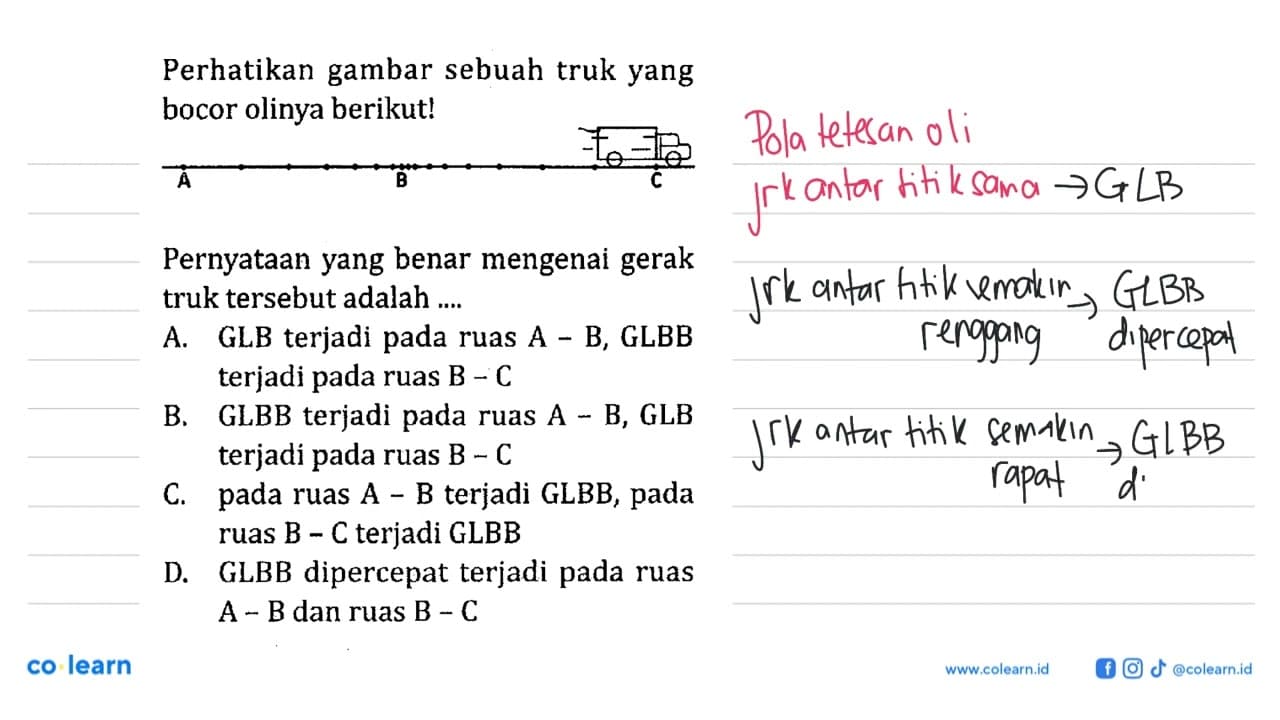 Perhatikan gambar sebuah truk yang
bocor olinya berikut!
A B C
Pernyataan yang benar mengenai gerak
truk tersebut adalah ....
A. GLB terjadi pada ruas A – B, GLBB
terjadi pada ruas B – C
B. GLBB terjadi pada ruas A – B, GLB
terjadi pada ruas B – C
C. pada ruas A – B terjadi GLBB, pada
ruas B – C terjadi GLBB
D. GLBB dipercepat terjadi pada ruas
A – B dan ruas B – C
Pola tetesan oli
jrk antar titik sama → GLB
jrk antar titik semakin → GLBB
renggang dipercepat
jrk antar titik semakin → GLBB
rapat di
co·learn
www.colearn.id
@colearn.id